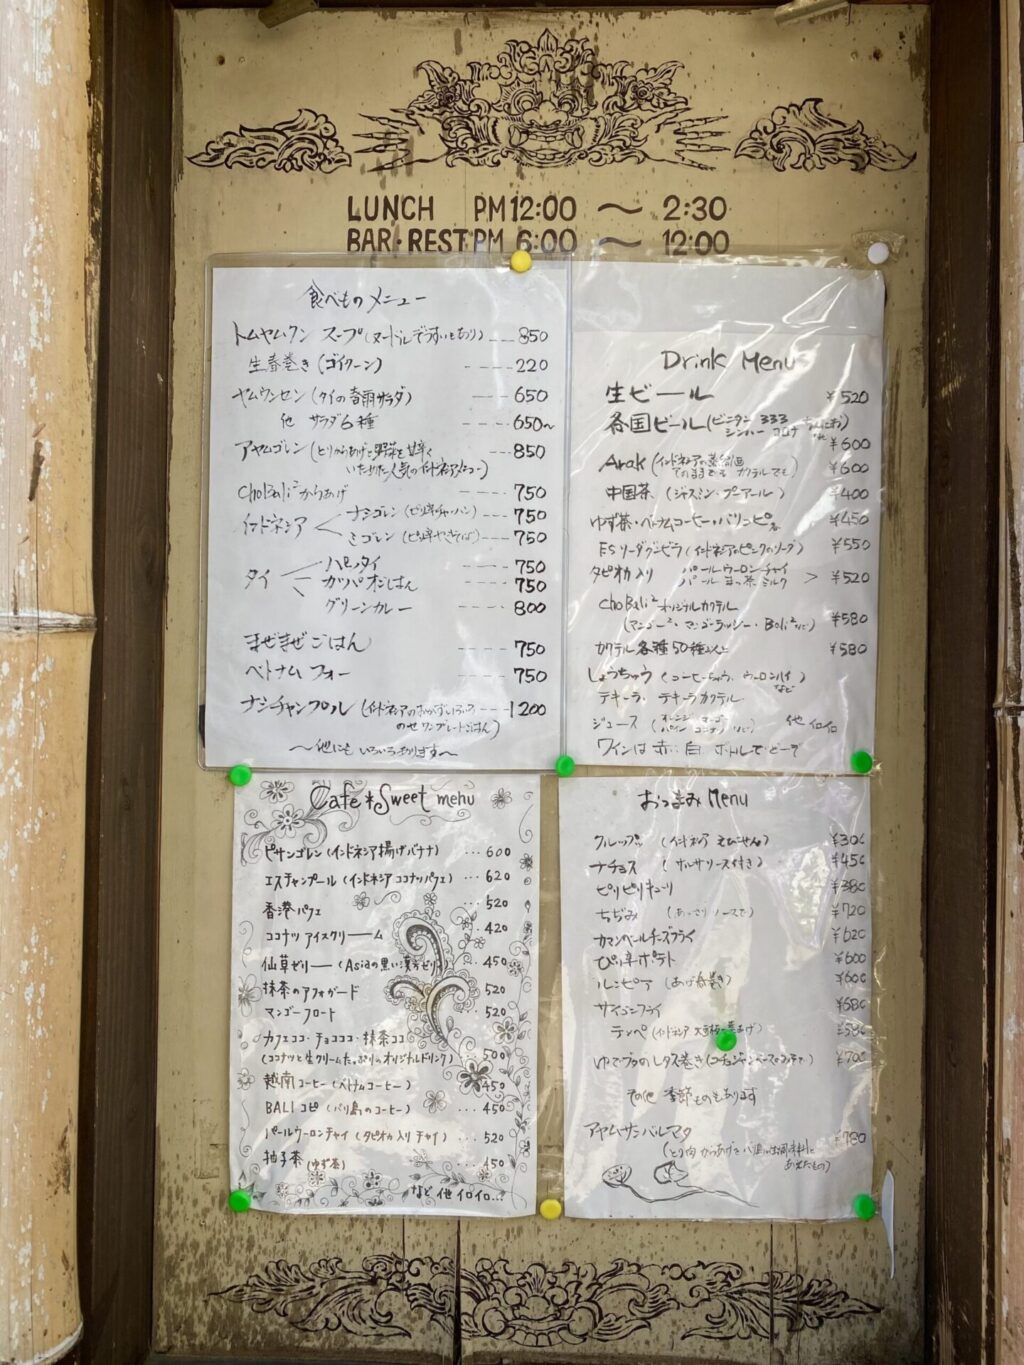 LUNCH PM 12:00 〜 2:30
BAR・REST PM 6:00 〜 12:00
食べものメニュー
トムヤムクン スープ(ヌードルぞうすいもあり) 850
生春巻き(ゴイクーン) 220
ヤムウンセン(タイの春雨サラダ) 650
他 サラダ6種 650〜
アヤムゴレン(とりからあげと野菜を甘辛く 850
いためた人気のインドネシアメニュー)
ChoBali²からあげ 750
インドネシア ナシゴレン(ピリ辛チャーハン) 750
ミゴレン(ピリ辛やきそば) 750
タイ パッタイ 750
カッパオごはん 750
グリーンカレー 800
まぜまぜごはん 750
ベトナム フォー 750
ナシチャンプル(インドネシアのおかずいろいろ 1200
のせワンプレートごはん)
〜他にもいろいろあります〜
Drink Menu
生ビール ¥520
各国ビール(ビンタン 333
シンハー コロナ など) ¥600
Arak(インドネシアの
カクテルでも) ¥600
中国茶(ジャスミン・プーアール) ¥400
ゆず茶・ベトナムコーヒー・バリコピ ¥450
(インドネシアのピンクのソーダ) ¥550
タピオカ入り パールウーロンチャイ
パール まっ茶ミルク ¥520
ChoBali²オリジナルカクテル
(マンゴー²・マンゴーラッシー・Bali²など) ¥580
カクテル各種50種以上 ¥580
しょうちゅう(コーヒーちゅう、ウーロンハイ)など
テキーラ、テキーラカクテル
ジュース(オレンジ マンゴー 他 イロイロ
パイン
ワインは赤・白 ボトルでどーぞ
Cafe*Sweet menu
ピサンゴレン(インドネシア揚げバナナ) …600
エスチャンプール(インドネシアココナツパフェ) …620
香港パフェ …520
ココナツアイスクリーム …420
仙草ゼリー(Asiaの黒い漢方ゼリー) …450
抹茶のアフォガード …520
マンゴーフロート …520
カフェココ・チョコココ・抹茶ココ
(ココナツと生クリームたっぷりのオリジナルドリンク) …500
越南コーヒー(ベトナムコーヒー) …450
BALIコピ(バリ島のコーヒー) …450
パールウーロンチャイ(タピオカ入りチャイ) …520
柚子茶(ゆず茶) …450
など他イロイロ…
おつまみ Menu
クルップッ(インドネシア えびせん) ¥300
ナチョス(サルサソース付き) ¥450
ピリピリキューリ ¥380
ちぢみ(あっさりソースで) ¥720
カマンベールチーズフライ ¥620
ぴり辛ポテト ¥600
ルンピア(あげ春巻き) ¥600
サイコンフライ ¥680
テンペ(インドネシア 大豆 げ) ¥580
ゆでブタのレタス巻き(コチュジャンベースのみそで) ¥700
その他 季節ものもあります
アヤムサンバルマタ ¥780
(とり肉からあげをバリの生調味料と
あえたもの)